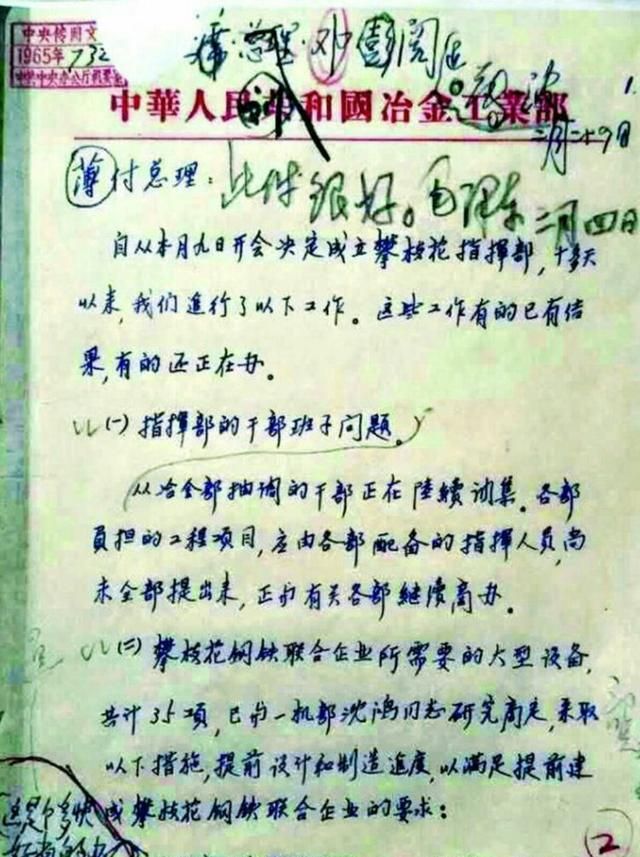 中央传阅文
1965年732
中共中央办公厅机要室
邓 彭 阅
中華人民共和國冶金工業部
二月二十9日
1.
薄付总理：
此件很好。毛泽东 二月四日
自从本月九日开会决定成立攀枝花指揮部，十多天
以来，我们進行了以下工作。这些工作有的已有结
果，有的还正在办。
(一)指揮部的干部班子问题。
从冶金部抽调的干部正在陸續调集。各部
負担的工程项目，应由各部配备的指揮人员，尚
未全部提出来，正与有关各部継续商办。
(二)攀枝花钢铁联合企业所需要的大型设备，
共计35项，已与一机部沈鸿同志研究商定，采取
以下措施，提前设计和制造進度，以满足提前建
成攀枝花钢铁联合企业的要求：
这是个多快
2